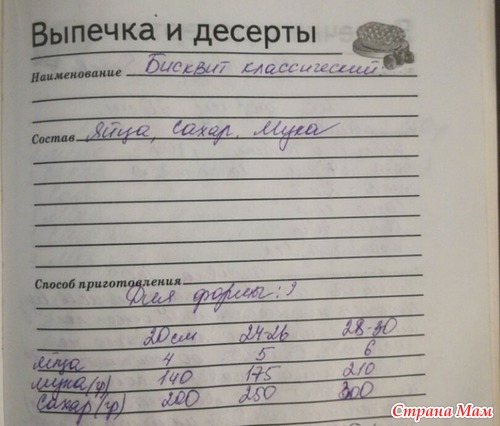 Выпечка и десерты
Наименование Бисквит классический.
Состав Яйца, сахар, мука
Способ приготовления
Для формы:
20см 24-26 28-30
яйца 4 5 6
мука (г) 140 175 210
сахар (г) 200 250 300
Страна Мам